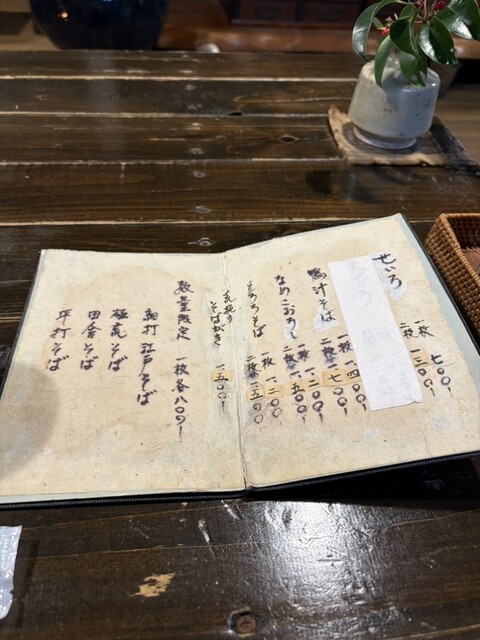 せいろ
一枚 七〇〇!
二枚 一三〇〇!
鴨汁そば
一枚 一四〇〇!
二枚 一七〇〇!
なめこおろし
一枚 一二〇〇!
二枚 一五〇〇!
とろろそば
一枚 一二〇〇
二枚 一五〇〇
荒挽き
そばがき 一五〇〇!
数量限定 一枚各八〇〇!
江戸そば
極荒そば
田舎そば
平打そば